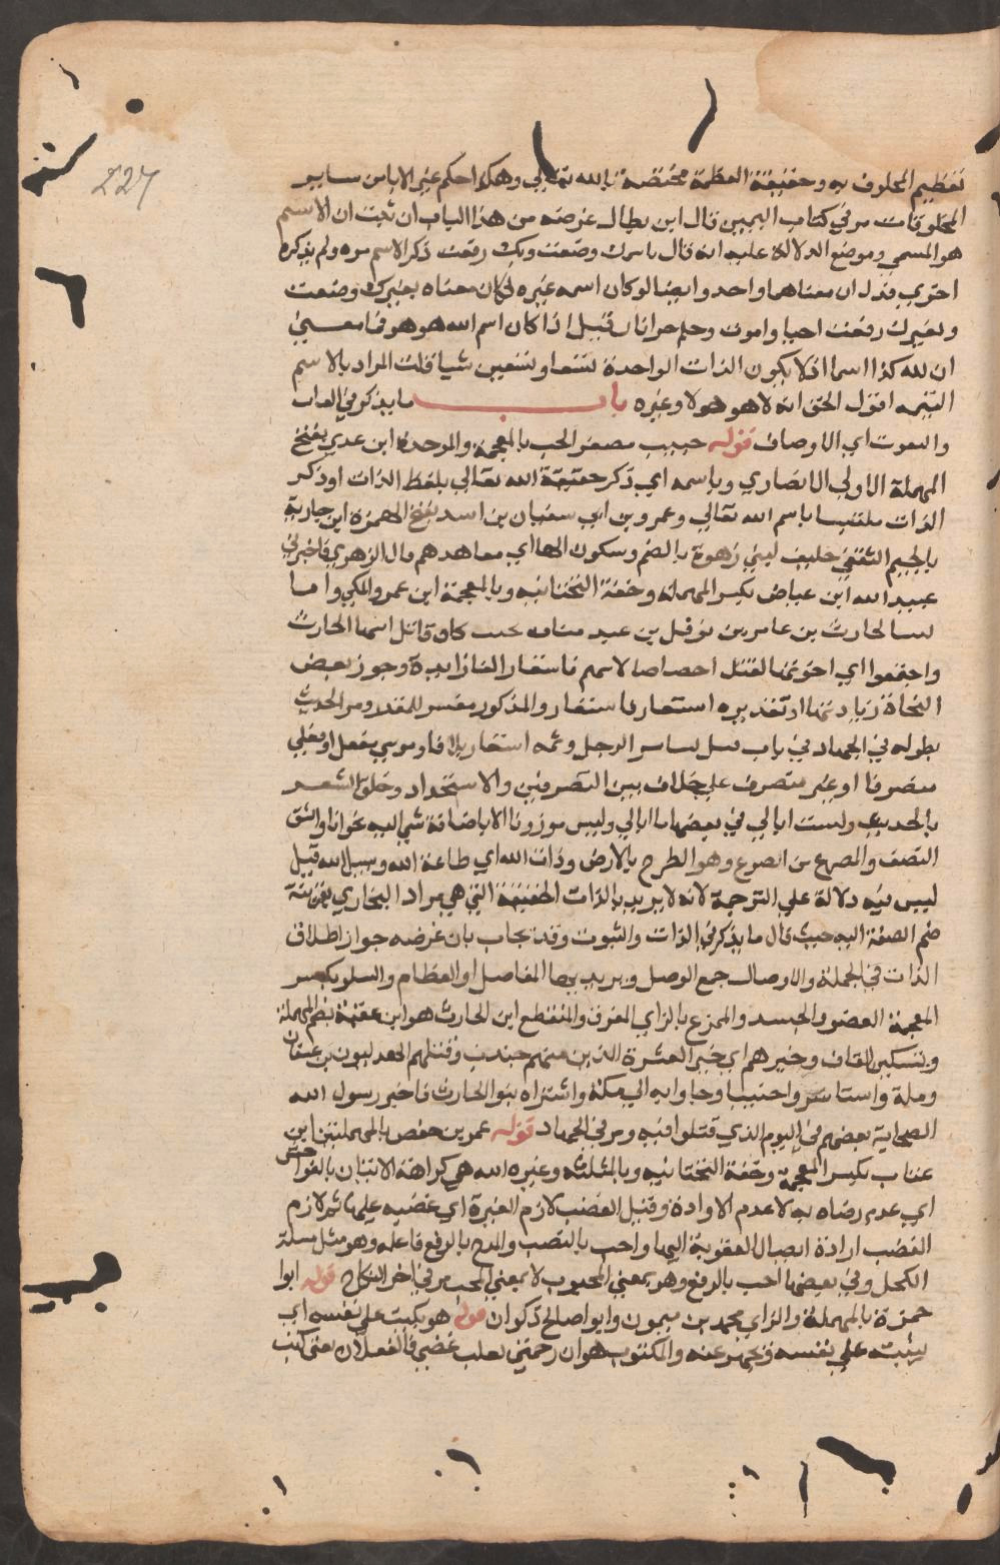 227
تعظيم المحلوف به وحقيقة العظمة مختصة بالله تعالى وهكذا حكم غير الاباس ساير
المخلوقات مر في كتاب اليمين قال ابن بطال غرضه من هذا الباب ان يثبت ان الاسم
هو المسمى وموضع الدلالة عليه انه قال باسمك وضعت وبك رفعت ذكر الاسم مره ولم يذكره
اخرى فدل ان معناهما واحد وايضا لو كان اسمه غيره لكان معناه بغيرك وضعت
وبغيرك رفعت احيا واموت وهلم جرا فان قيل اذا كان اسم الله هو هو فما معنى
ان لله كذا اسما اذ لا يكون الذات الواحدة تسعا وتسعين شيا قلت المراد بالاسم
التسمية اقول الحق انه لا هو هو ولا غيره باب ما يذكر في الذات
والنعوت اي الاوصاف قوله حبيب مصغر الحب بالمعجمة والموحدة ابن عدي بفتح
المهملة الاولى الانصاري وباسمه اي ذكر حقيقة الله تعالى بلفظ الذات او ذكر
الذات ملتبسا باسم الله تعالى وعمرو بن ابي سفيان بن اسيد بفتح الهمزة ابن جارية
بالجيم الثقفي حليف لبني زهرة بالضم وسكون الها اي معاهدهم قال الزهري فاخبرني
عبيد الله ابن عياض بكسر المهملة وخفة التحتانية وبالمعجمة ابن عمرو المكي واما
الحارث بن عامر بن نوفل بن عبد مناف كان قاتل الحارث
واجتمعوا اي اخوتها لقتل لاسهم فاستعار الفا زايدة وجوز بعض
النحاة زيادتها او تقديره استعار فاستعار والمذكور مفسر للمقدر ومر الحديث
بطوله في الجهاد في باب هل يستاسر الرجل وثمه استعار بلا فا وموسى مفعل او فعلى
منصرفا او غير منصرف على خلاف بين التصرفين والاستحداد وحلق الشعر
بالحديد ولست ابالي في بعضها ما ابالي وليس موزونا الا باضافة شي اليه نحو انا والشق
النصف والمصرع من الصرع وهو الطرح بالارض وذات الله اي طاعة الله وسبيل الله قيل
ليس فيه دلالة على الترجمة لانه لا يريد بالذات الحقيقة التي هي مراد البخاري بقرينة
ضم الصفة اليه حيث قال ما يذكر في الذات والنعوت وقد يجاب بان غرضه جواز اطلاق
الذات في الجملة والاوصال جمع الوصل ويريد بها المفاصل او العظام والشلو بكسر
المعجمة العضو والجسد والممزع بالزاي المفرق والمقطع ابن الحارث هو ابن عقبة بضم المهملة
وتسكين القاف وخبرهم اي خبر العشرة الذين منهم خبيب وقتلهم الهذليون بين عسفان
ومكة واستاسروا خبيبا وجاوا به الى مكة واشتراه بنو الحارث فاخبر رسول الله
الصحابة بعضهم في اليوم الذي قتلوا فيه ومر في الجهاد قوله عمر بن حفص بالمهملتين ابن
غياث بكسر المعجمة وخفة التحتانية وبالمثلثة وغيره الله هي كراهة الاتيان بالفواحش
اي عدم رضاه به لا عدم الارادة وقيل الغضب لازم الغيرة اي غضبه عليها ثم لازم
الغضب ارادة ايصال العقوبة اليها واحب بالنصب والمدح بالرفع فاعله وهو مثل مسلة
الكحل وفي بعضها احب بالرفع وهو بمعنى المحبوب لا بمعنى المحب مر في اخر النكاح قوله ابوا
حمزة بالمهملة والزاي محمد بن ميمون وابوا صالح ذكوان قوله هو يكتب على نفسه اي
يثبته على نفسه والمكتوب هو ان رحمتي تغلب غضبي فالفعلان يعني كتب